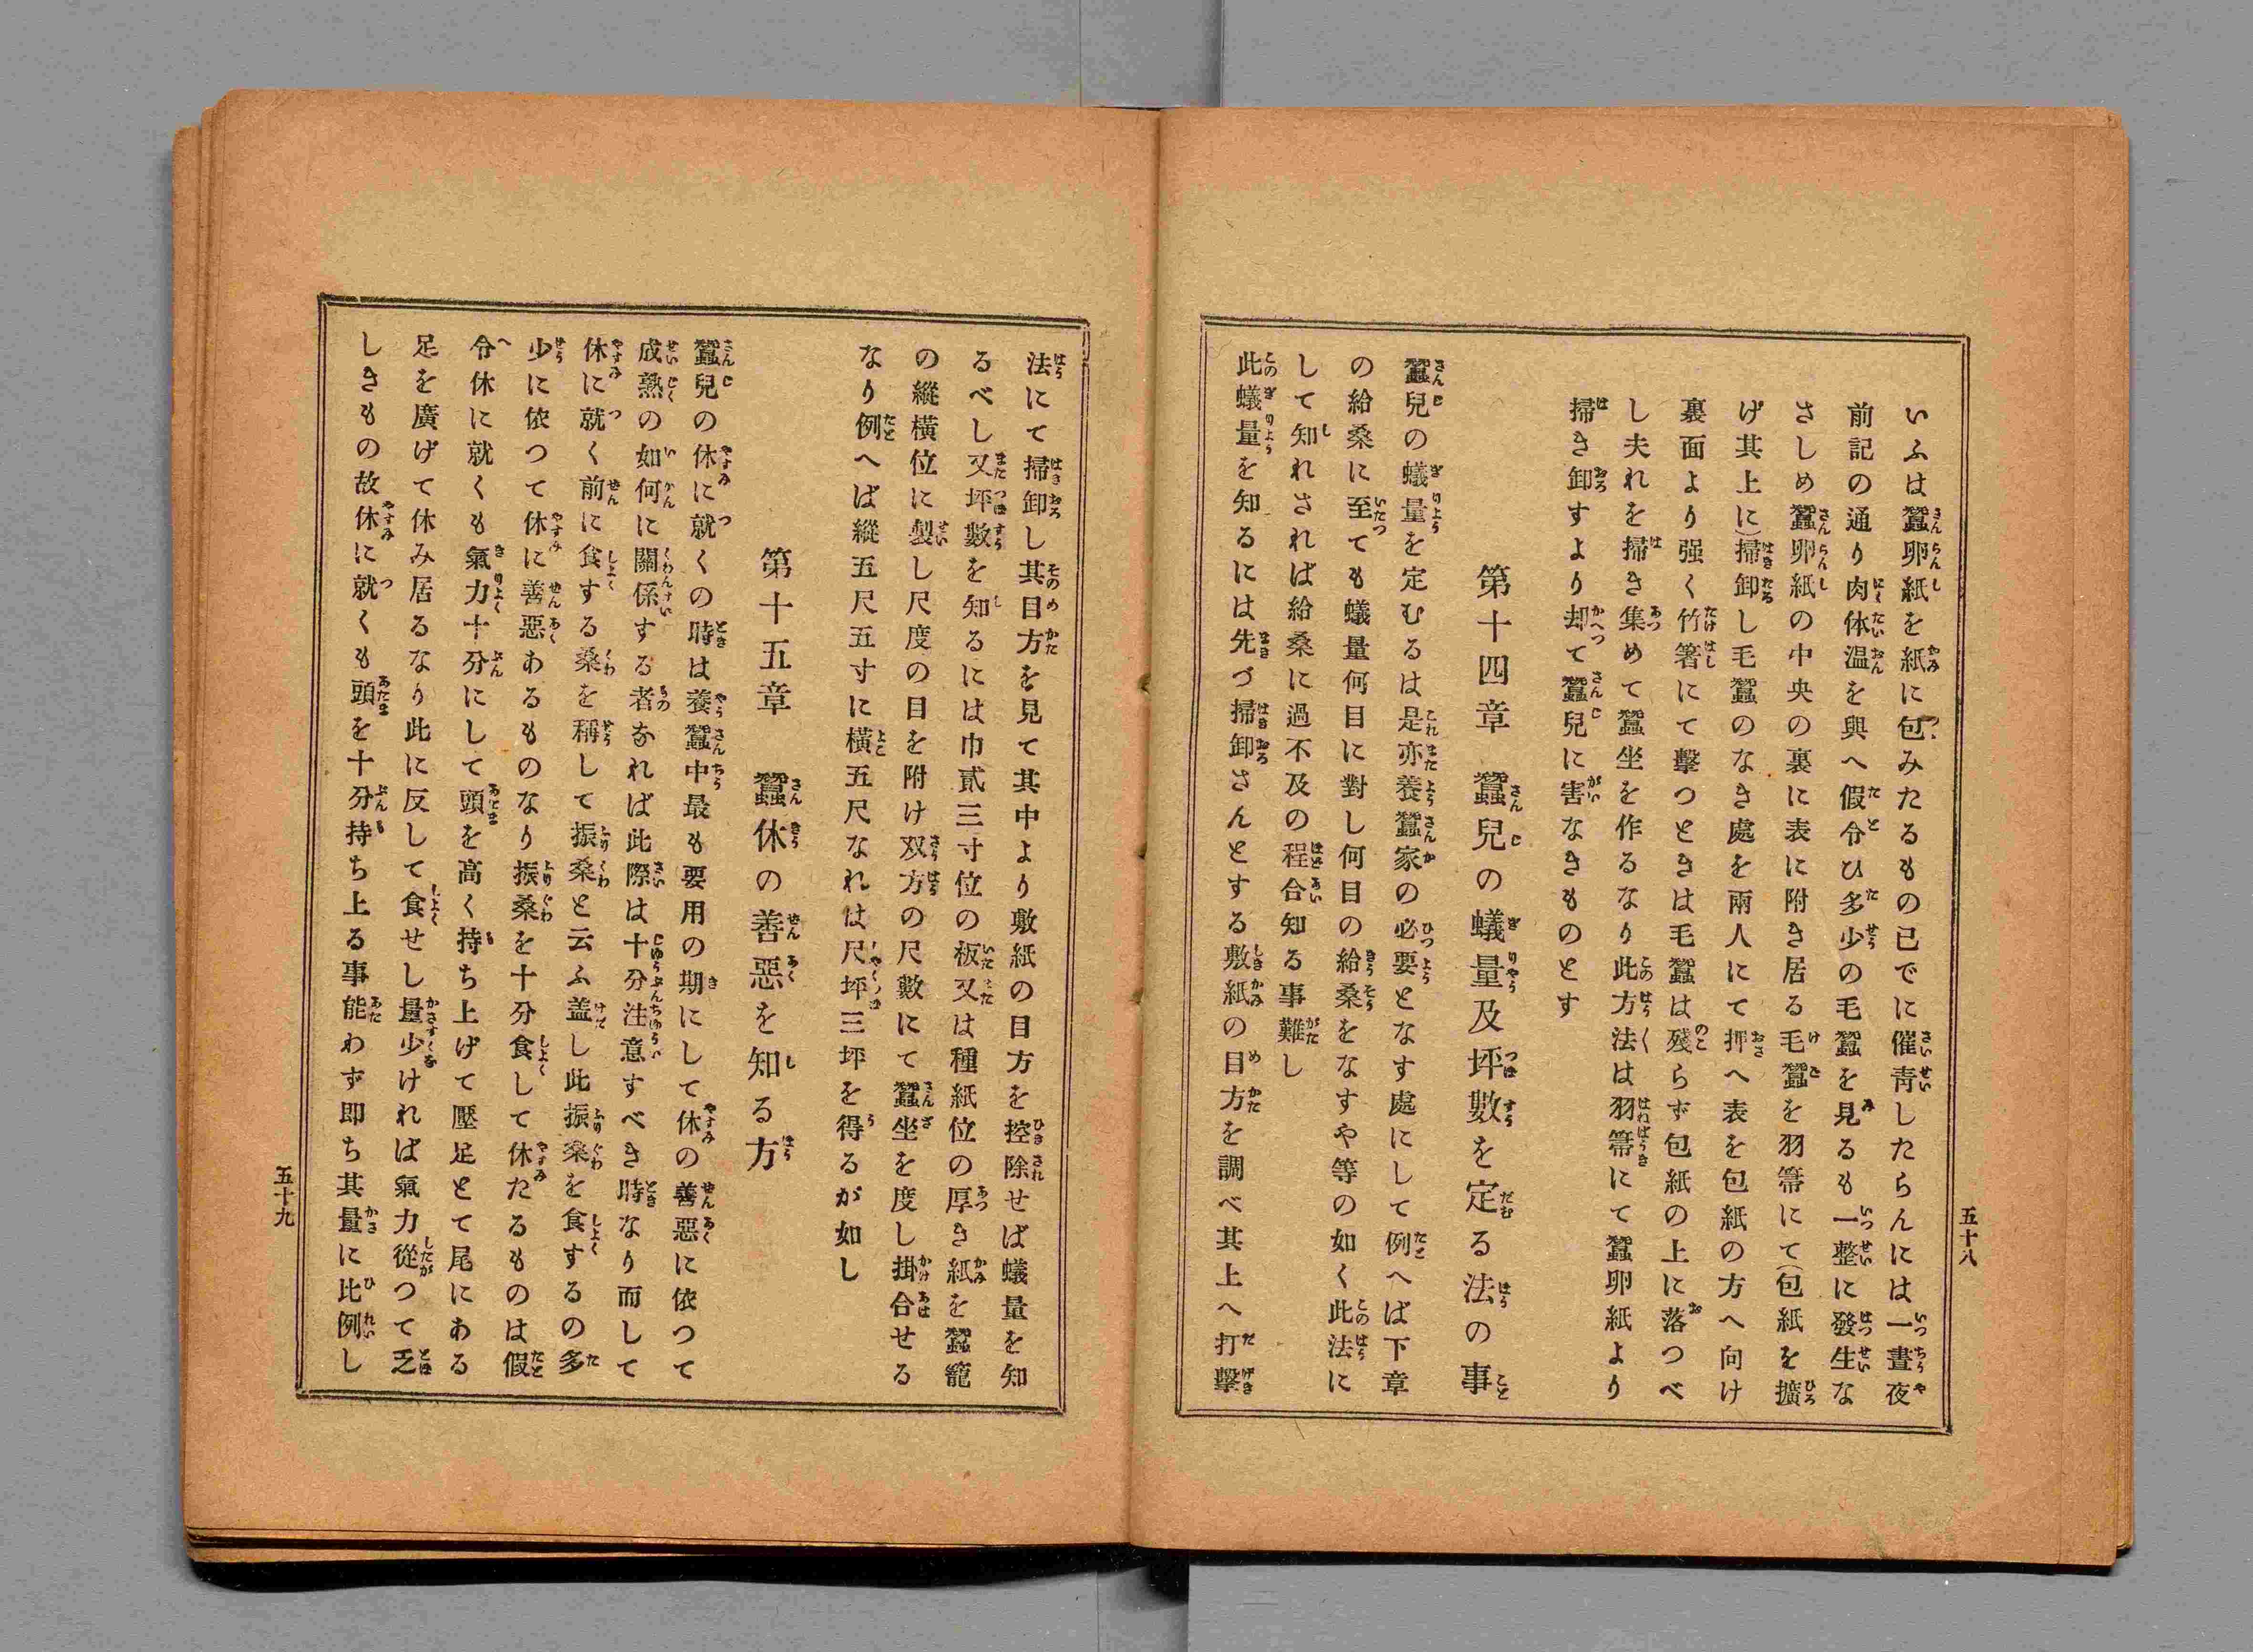 いふは蠶卵紙を紙に包みたるもの已でに催靑したらんには一晝夜
前記の通り肉体温を與へ假令ひ多少の毛蠶を見るも一整に發生な
さしめ蠶卵紙の中央の裏に表に附き居る毛蠶を羽箒にて(包紙を擴
げ其上に)掃卸し毛蠶のなき處を兩人にて押へ表を包紙の方へ向け
裏面より强く竹箸にて擊つときは毛蠶は殘らず包紙の上に落つべ
し夫れを掃き集めて蠶坐を作るなり此方法は羽箒にて蠶卵紙より
掃き卸すより却て蠶兒に害なきものとす
第十四章　蠶兒の蟻量及坪數を定る法の事
蠶兒の蟻量を定むるは是亦養蠶家の必要となす處にして例へば下章
の給桑に至ても蟻量何目に對し何目の給桑をなすや等の如く此法に
して知れされば給桑に過不及の程合知る事難し
此蟻量を知るには先づ掃卸さんとする敷紙の目方を調べ其上へ打擊
五十八
法にて掃卸し其目方を見て其中より敷紙の目方を控除せば蟻量を知
るべし又坪數を知るには巾貳三寸位の板又は種紙位の厚き紙を蠶籠
の縱橫位に製し尺度の目を附け双方の尺數にて蠶坐を度し掛合せる
なり例へば縱五尺五寸に橫五尺なれは尺坪三坪を得るが如し
第十五章　蠶休の善惡を知る方
蠶兒の休に就くの時は養蠶中最も要用の期にして休の善惡に依つて
成熟の如何に關係する者なれば此際は十分注意すべき時なり而して
休に就く前に食する桑を稱して振桑と云ふ盖し此振桑を食するの多
少に依つて休に善惡わるものなり振桑を十分食して休たるものは假
令休に就くも氣力十分にして頭を高く持ち上げて壓足とて尾にある
足を廣げて休み居るなり此に反して食せし量少ければ氣力從つて乏
しきもの故休に就くも頭を十分持ち上る事能わず即ち其量に比例し
五十九